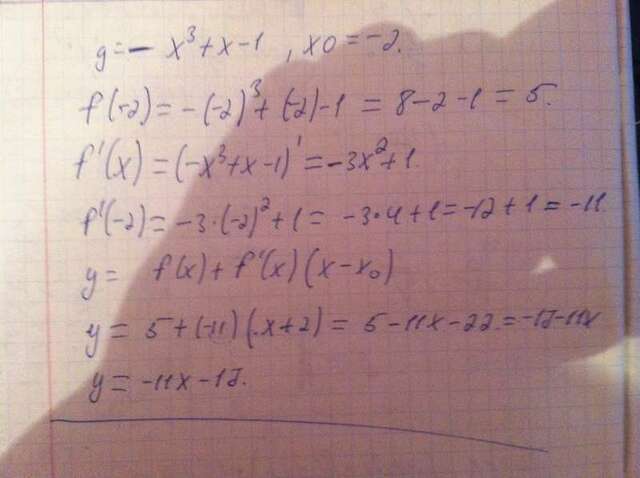 y = - x³ + x - 1 , x0 = -2.
f(-2) = -(-2)³ + (-2) - 1 = 8 - 2 - 1 = 5.
f'(x) = (-x³ + x - 1)' = -3x² + 1.
f'(-2) = -3·(-2)² + 1 = -3·4 + 1 = -12 + 1 = -11
y = f(x) + f'(x)(x - x₀)
y = 5 + (-11)(x + 2) = 5 - 11x - 22 = -17 - 11x
y = -11x - 17.